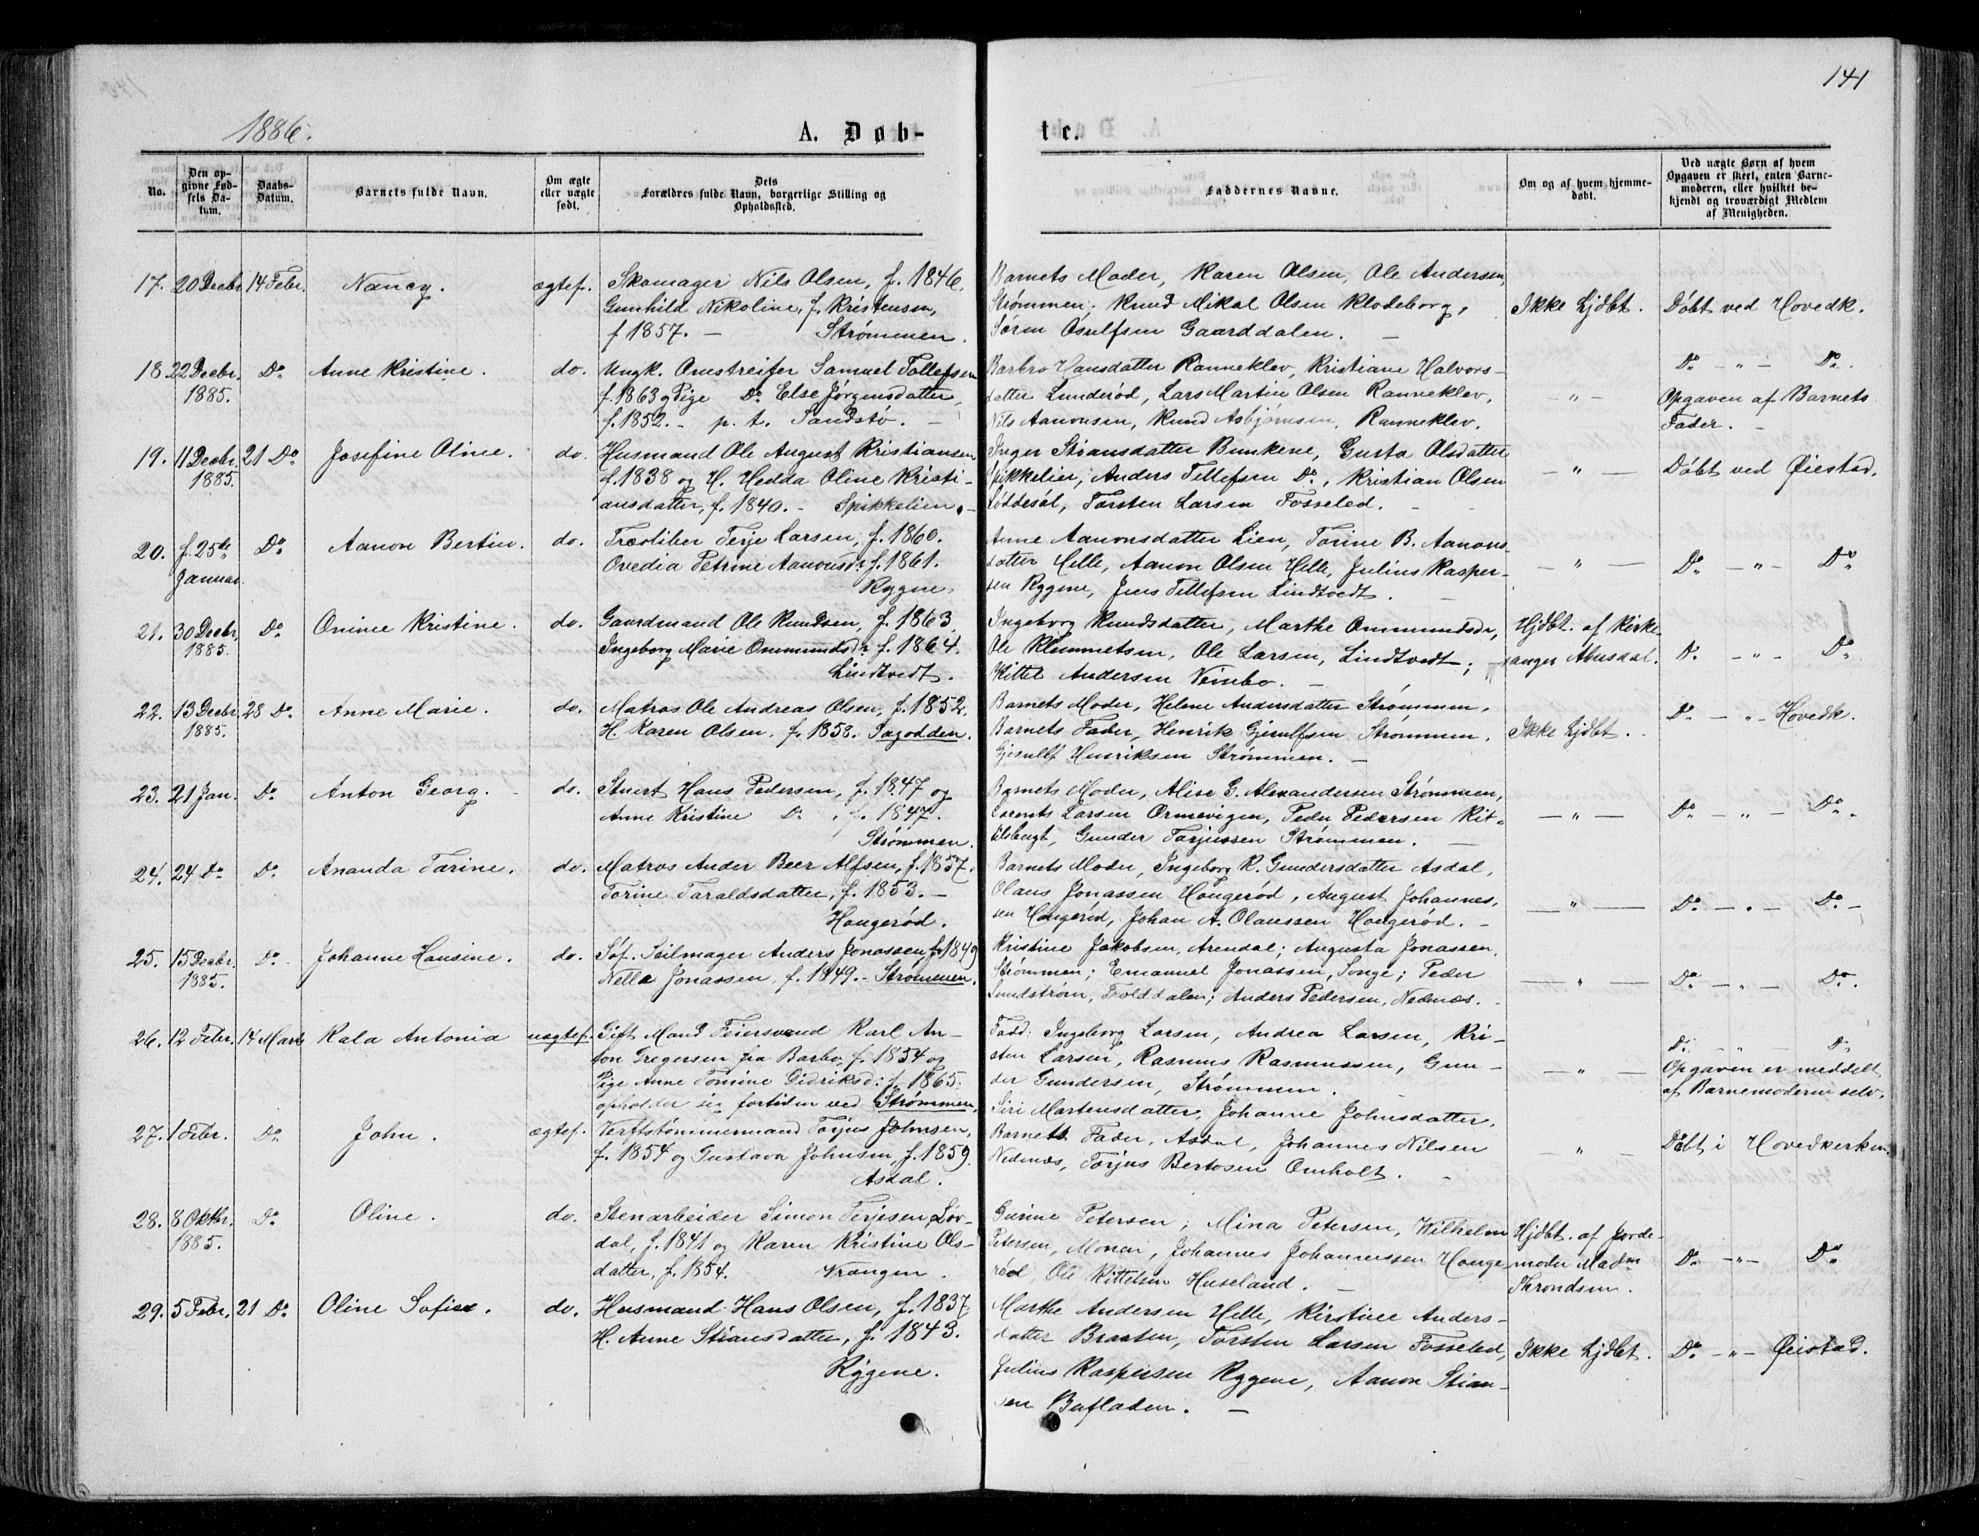 141
1886.
A. Døb-
te.
No.
Den op-
givne Fød-
sels Da-
tum.
Daabs-
Datum.
Barnets fulde Navn.
Om ægte
eller uægte
født.
Dets
Forældres fulde Navn, borgerlige Stilling og
Opholdssted.
Faddernes Navne.
Om og af hvem hjemme-
døbt.
Ved uægte Børn af hvem
Opgaven er skeet, enten Barne-
moderen, eller hvilket be-
kjendt og troværdigt Medlem
af Menigheden.
17. 20 Decbr. 14 Febr. Nancy. ægtef.
Skomager Nils Olsen, f. 1846.
Gunhild Nikoline, f. Kristensen,
f 1857. – Strømmen.
Barnets Moder, Karen Olsen, Ole Andersen,
Strømmen; Knud Mikal Olsen Klodeborg,
Søren Osulfsen Gaarddalen. –
Ikke hjdbt. Døbt ved Hovedk.
18. 22 Decbr. 1885. Do Anne Kristine. do.
Ungk. Omstreifer Samuel Tollefsen
f. 1863 og Pige Do Else Jørgensdatter,
f. 1852. – p. t. Sandstø. –
Barbro Hansdatter Ranneklev, Kristiane Halvors-
datter Lunderød, Lars Martin Olsen Ranneklev,
Nils Aanonsen, Knud Asbjørnsen, Ranneklev.
" –
Do – " – Do.
Opgaven af Barnets
Fader. –
19. 11 Decbr. 1885. 21 Do Josefine Oline. do.
Husmand Ole August Kristiansen
f. 1838 og H. Hedda Oline Kristi-
ansdatter, f. 1840. – Spikkelien. –
Inger Stiansdatter Bunkene, Gusta Olsdatter
Spikkelier, Anders Tellefsen Do, Kristian Olsen
Løddesøl, Torsten Larsen Fosseled. –
– " – Døbt ved Øiestad.
20. f. 25de Januar. Do Aanon Bertin. do.
Træsliber Terje Larsen, f. 1860.
Ovedia Petrine Aanonsdr f. 1861.
Rygene.
Anne Aanonsdatter Lien, Torine B. Aanons-
datter Helle, Aanon Olsen Helle, Julius Kasper-
sen Rygene, Jens Tellefsen Lindtvedt. –
– " – Do – " – Do
21. 30 Decbr. 1885. Do Onime Kristine. do.
Gaardmand Ole Knudsen, f. 1863
Ingeborg Marie Ommundsdr f. 1864.
Lindtvedt.
Ingeborg Knudsdatter, Marthe Ommundsdr,
Ole Klemmetsen, Ole Larsen, Lindtvedt; –
Kittel Andersen Neimbo. –
Hjdbt. af Kirke-
sanger Aausdal. Do – " – Do
22. 13 Decbr. 1885. 28 Do Anne Marie. do.
Matros Ole Andreas Olsen, f. 1852.
H. Karen Olsen. f. 1858. Sagodden.
Barnets Moder, Helene Andersdatter Strømmen,
Barnets Fader, Henrik Gjerulfsen Strømmen,
Gjerulf Henriksen Strømmen. –
Ikke hjdbt. Do – " – Hovedk.
23. 21 Jan. Do Anton Georg. do.
Stuert Hans Pedersen, f. 1847 og
Anne Kristine Do, f. 1847.
Strømmen.
Barnets Moder, Alise G. Alexandersen Strømmen,
Lorents Larsen Ormevigen, Peder Pedersen Kit-
telsbugt, Gunder Torjussen Strømmen. –
– " – Do – " – Do.
24. 24 Do Do Ananda Tarine. do.
Matros Ander Beer Alfsen, f. 1857.
Torine Taraldsdatter, f. 1853. –
Hougerød.
Barnets Moder, Ingeborg K. Gundersdatter Asdal,
Olaus Jonassen Hougerød, August Johannes-
sen Hougerød, Johan A. Olaussen Hougerød. –
– " – Do – " – Do –
25. 15 Decbr. 1885. Do Johanne Hansine. do.
Søf. Seilmager Anders Jonassen, f. 1849
Nella Jonassen, f. 1849. – Strømmen.
Kristine Jakobsen, Arendal; Augusta Jonassen,
Strømmen; Emanuel Jonassen, Songe; Peder
Sundstrøm, Folddalen; Anders Pedersen, Nednæs. –
– " – Do – " – Do.
26. 12 Febr. 14 Marts Kala Antonia uægtef.
Gift Mand Feiersvend Karl An-
ton Gregersen fra Barbo, f. 1854 og
Pige Anne Tomine Didriksd: f. 1865.
opholder sig fortiden ved Strømmen.
Fadd: Ingeborg Larsen, Andrea Larsen, Kri-
sten Larsen, Rasmus Rasmussen, Gun-
der Gundersen, Strømmen.
– " –
Do – " – Do
Opgaven er meddelt
af Barnemoderen selv.
27. 1 Febr. Do John. ægtef.
Verftstømmermand Torjus Johnsen,
f. 1854 og Gustava Johnsen, f. 1859.
Asdal.
Siri Martensdatter, Johanne Johnsdatter,
Barnets Fader, Asdal, Johannes Nilsen
Nednæs, Torjus Bertosen Omholt. –
" – Døbt i Hovedkerken.
28. 8 Oktbr. 1885. Do Oline. do.
Stenarbeider Simon Terjesen Løv-
dal, f. 1841 og Karen Kristine Ols-
datter, f. 1854. Vrangen.
Gurine Petersen, Mina Petersen, Wilhelm
Petersen, Monen, Johannes Johannessen Houge-
rød, Ole Kittelsen Huseland. –
Hjdbt. af Jorde-
moder Madm
Throndsen. Do – " – Do
29. 5 Febr. 21 Do Oline Sofie. do.
Husmand Hans Olsen, f. 1837
H. Anne Stiansdatter, f. 1843.
Rygene.
Marthe Andersen Helle, Kirstine Anders-
datter Braaten, Torsten Larsen Fosseled,
Julius Kaspersen Rygene, Aanon Stian-
sen Bufladen. –
Ikke hjdbt. Do – " – Øiestad.